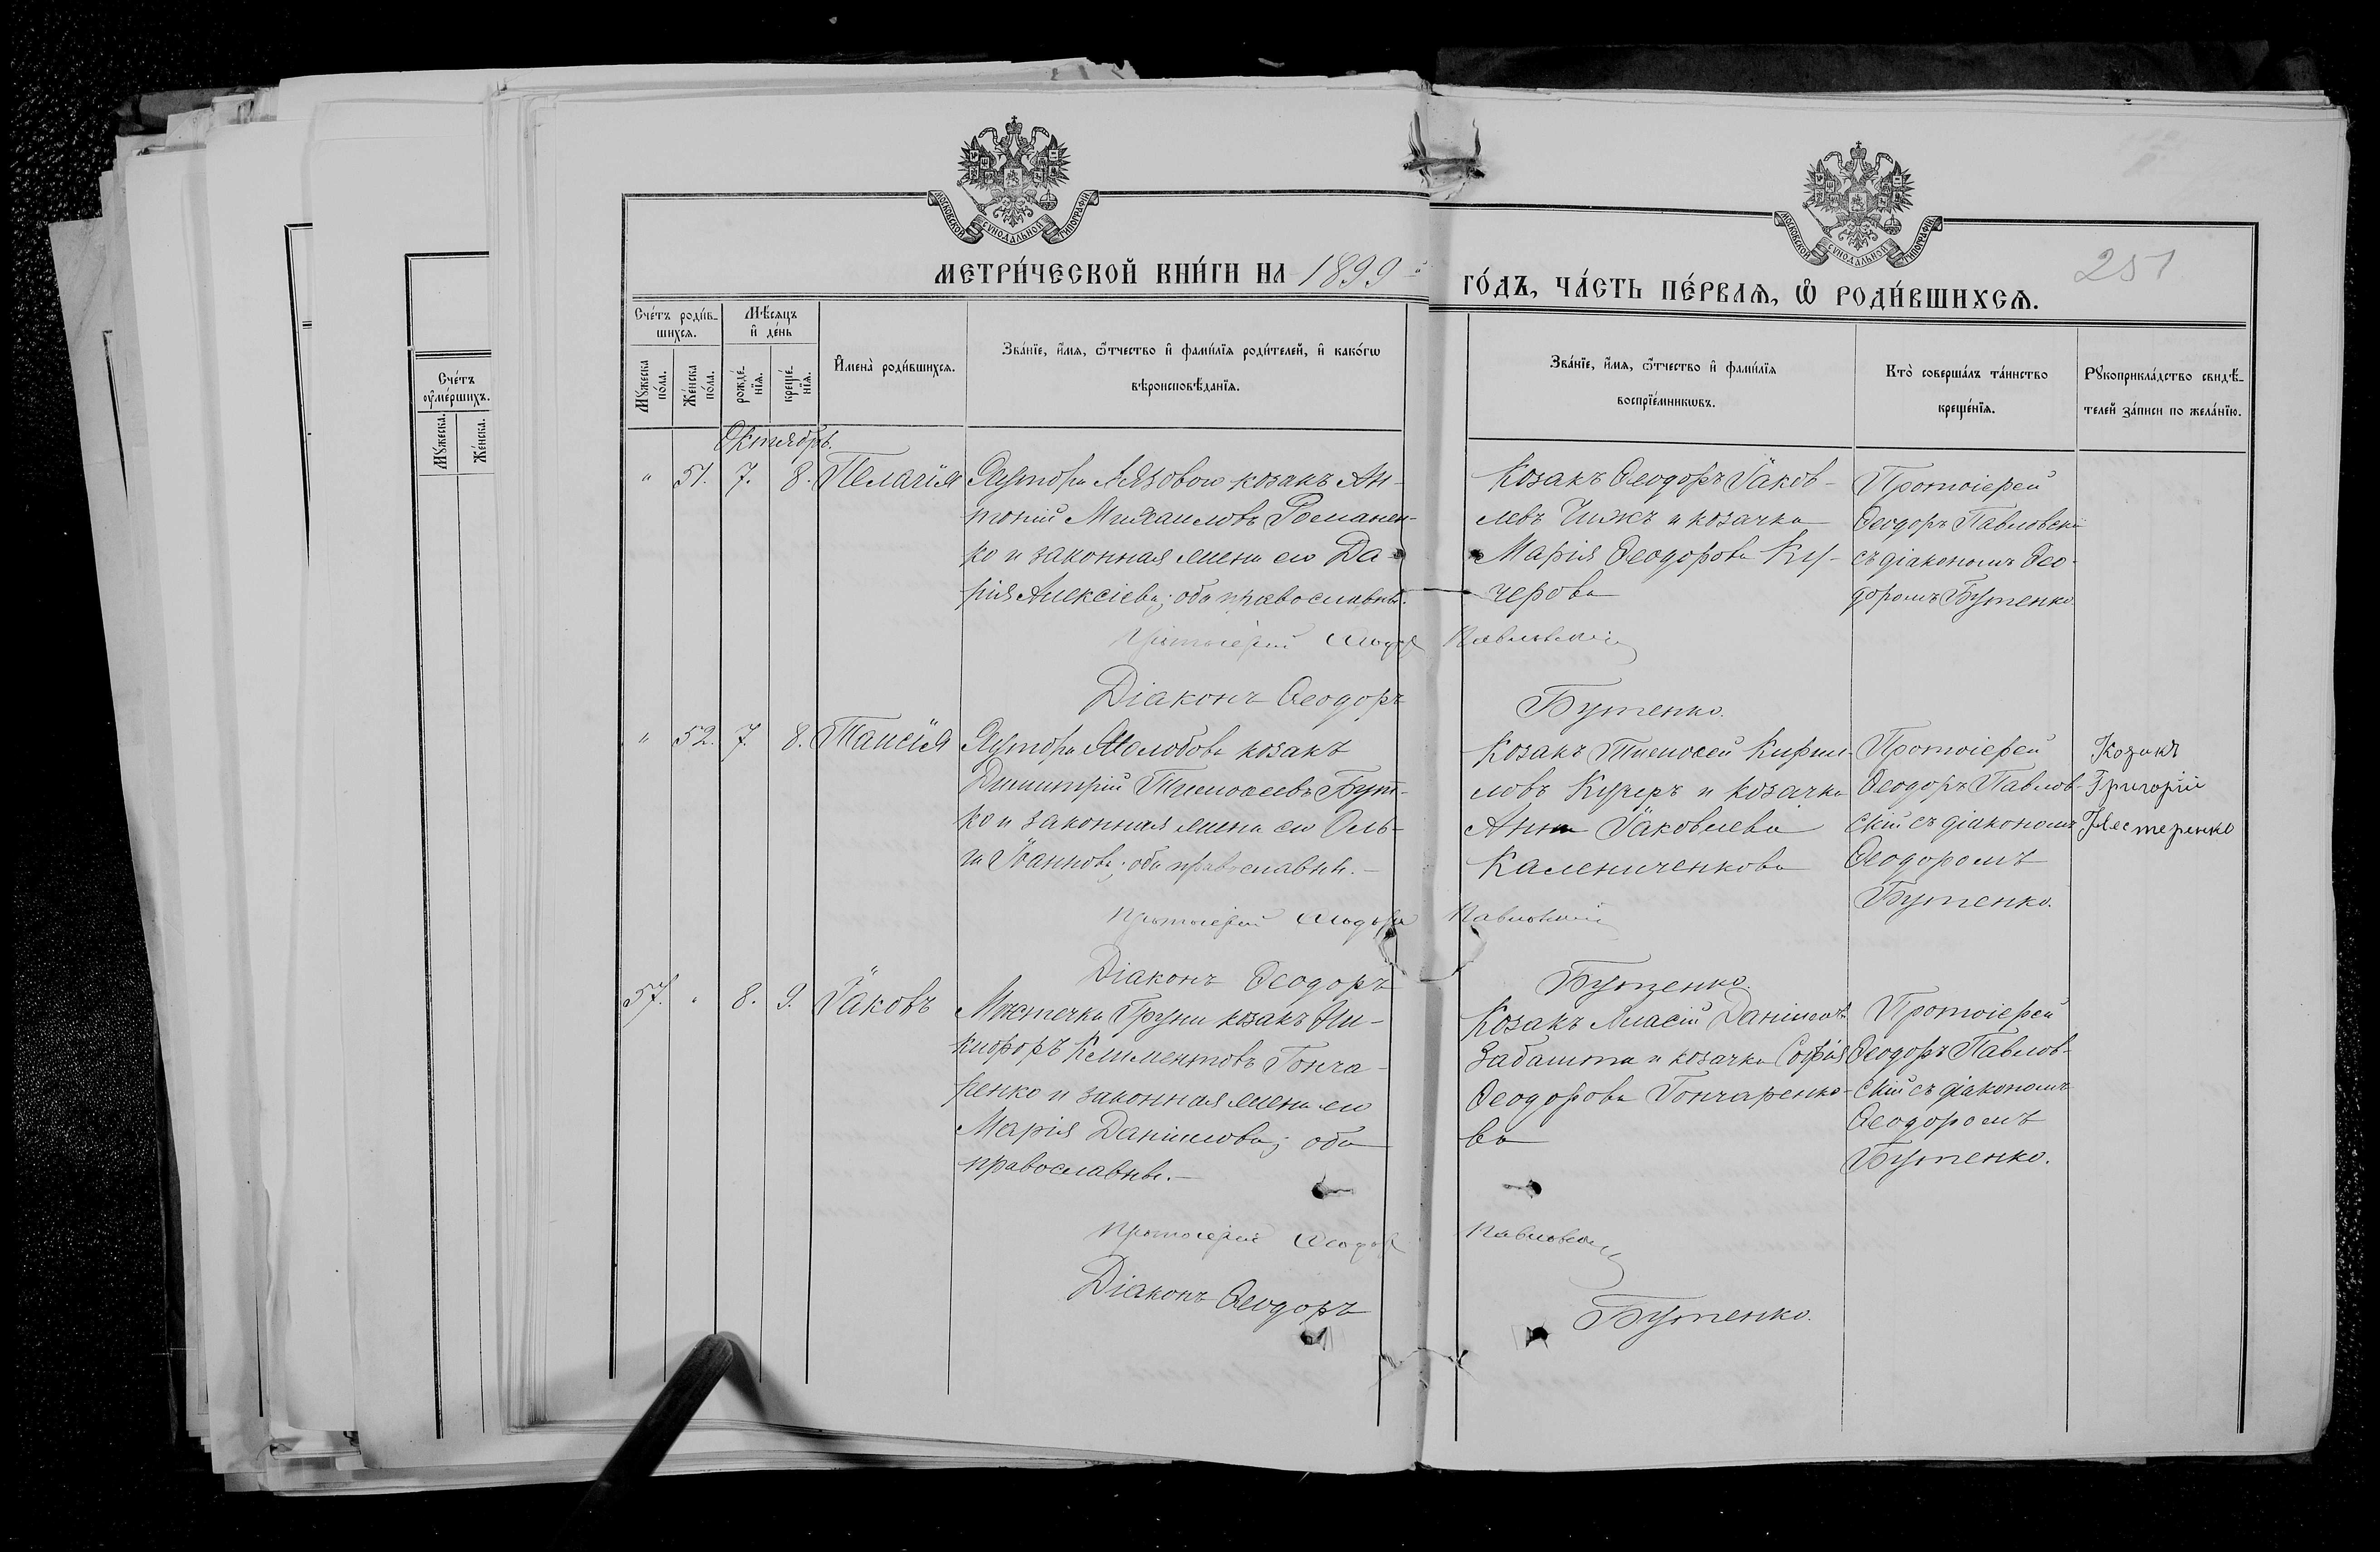 МОСКОВСКОЙ СѴНОДАЛЬНОЙ ТИПОГРАФІИ
МОСКОВСКОЙ СѴНОДАЛЬНОЙ ТИПОГРАФІИ
МЕТРИ́ЧЕСКОЙ КНИ́ГИ НА 1899 й
ГО́ДЪ, ЧА́СТЬ ПЕ́РВАѦ, Ѡ РОДИ́ВШИХСѦ.
251
Сче́тъ роди́в-
шихсѧ.
Мѣ́сѧцъ
и҆ де́нь
Мꙋ́жеска
по́ла.
Же́нска
по́ла.
рожде́-
нїѧ.
креще́-
нїѧ.
И҆мена̀ роди́вшихсѧ.
Зва́нїе, и҆́мѧ, ѻ҆́тчество и҆ фами́лїѧ роди́телей, и҆ како́гѡ
вѣроисповѣ́данїѧ.
Зва́нїе, и҆́мѧ, ѻ҆́тчество и҆ фами́лїѧ
воспрїе́мникѡвъ.
Кто̀ соверша́лъ та́инство
креще́нїѧ.
Рꙋкоприкла́дство свидѣ́-
телей за́писи по жела́нїю.
Сче́тъ
оу҆ме́ршихъ.
Мꙋ́жеска.
Же́нска.
Октябрь.
" 51. 7. 8. Пелагія
Хутора козакъ Ан-
тоній Михаиловъ Романен-
ко и законная жена его Да-
рія Алексіева; оба православны.
Козакъ Ѳеодоръ Іаков-
левъ Чижъ и козачка
Марія Ѳеодорова Ку-
черова
Протоіерей
Ѳеодоръ Павловскій
съ діакономъ Ѳео-
доромъ Бутенко.
Протоіерей Ѳеодоръ Павловскій
Діаконъ Ѳеодоръ Бутенко.
" 52. 7. 8. Таисія
Хутора козакъ
Димитрій Тимоѳеевъ Бут-
ко и законная жена его Оль-
га Іоаннова; оба православны.
Козакъ Тимоѳей Кирил-
ловъ Кучеръ и козачка
Анна Іаковлева
Калениченкова
Протоіерей
Ѳеодоръ Павлов-
скій съ діакономъ
Ѳеодоромъ
Бутенко.
Козакъ
Григорій
Нестеренко
Протоіерей Ѳеодоръ Павловскій
Діаконъ Ѳеодоръ Бутенко.
57. " 8. 9. Іаковъ
Мѣстечка Груни козакъ Ни-
кифоръ Климентовъ Гонча-
ренко и законная жена его
Марія Даніилова; оба
православны.
Козакъ Даніиловъ
Забашта и козачка Софія
Ѳеодорова Гончаренко-
ва
Протоіерей
Ѳеодоръ Павлов-
скій съ діакономъ
Ѳеодоромъ
Бутенко.
Протоіерей Ѳеодоръ Павловскій
Діаконъ Ѳеодоръ Бутенко.